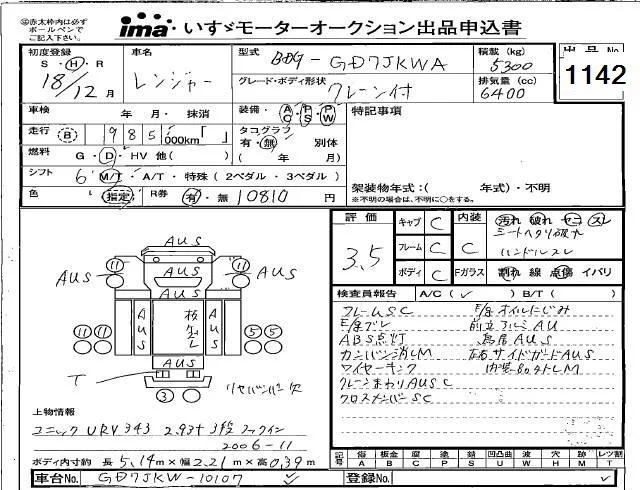 ㊟赤太枠内は必ず
ボールペンで
ご記入下さい。
ima いすゞモーターオークション出品申込書
初度登録 S・H・R 18/12月
車名 レンジャー
型式 BDG-GD7JKWA
積載(kg) 5300
出品No 1142
グレード・ボディ形状 クレーン付
排気量(cc) 6400
車検 年 月・抹消
装備・ AC PS PW
特記事項
走行 B 985 000km「 」
タコグラフ 有・無 別体
( 年 月)
燃料 G・D・HV 他( )
シフト 6 M/T・A/T・特殊(2ペダル・3ペダル)
色 指定 R券 有・無 10810円
架装物年式:( 年式)・不明
※不明の場合は、不明に○をする。
評価 3.5
キャブ C 内装 C 汚れ 破れ ヤニ スレ
シートヘタリ破れ
フレーム C ハンドルスレ
ボディ C Fガラス 割れ 線 点傷 イバリ
検査員報告 A/C(✓) B/T( )
フレームSC
E/gオイルにじみ
ABS点灯
カンバン消しM
ワイヤーキンク
クレーンまわりAUSC
クロスメンバSC
鳥居AUS
左右サイドガードAUS
AUS
11 11
AUS AUS AUS
AUS AUS
11 11 5 5
AUS
T
3
リヤバンパー欠
上物情報
ユニック URV343 2.93t 3段 フックイン
2006-11
ボディ内寸約 長5.14m×幅2.21m×高0.39m
記号 傷A 板金B 腐C 塗P 錆S 凹凸曲U 波W 穴H 跡M レンズ割T
車台No. GD7JKW-10107 ✓
登録No.